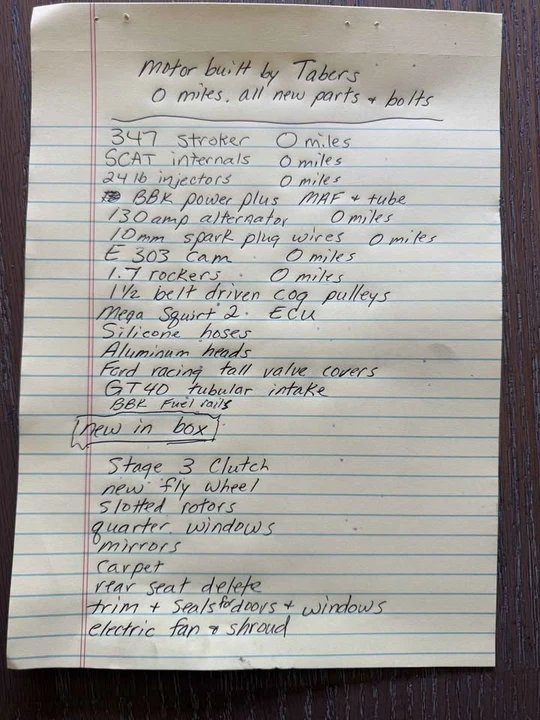 motor built by Tabers
0 miles. all new parts + bolts
347 stroker 0 miles
SCAT internals 0 miles
24 lb injectors 0 miles
BBK power plus MAF + tube
130 amp alternator 0 miles
10mm spark plug wires 0 miles
E 303 cam 0 miles
1.7 rockers 0 miles
1 1/2 belt driven cog pulleys
Mega Squirt 2. ECU
Silicone hoses
Aluminum heads
Ford racing tall valve covers
GT40 tubular intake
BBK Fuel rails
new in box
Stage 3 Clutch
new fly wheel
slotted rotors
quarter windows
mirrors
carpet
rear seat delete
trim + seals for doors + windows
electric fan & shroud